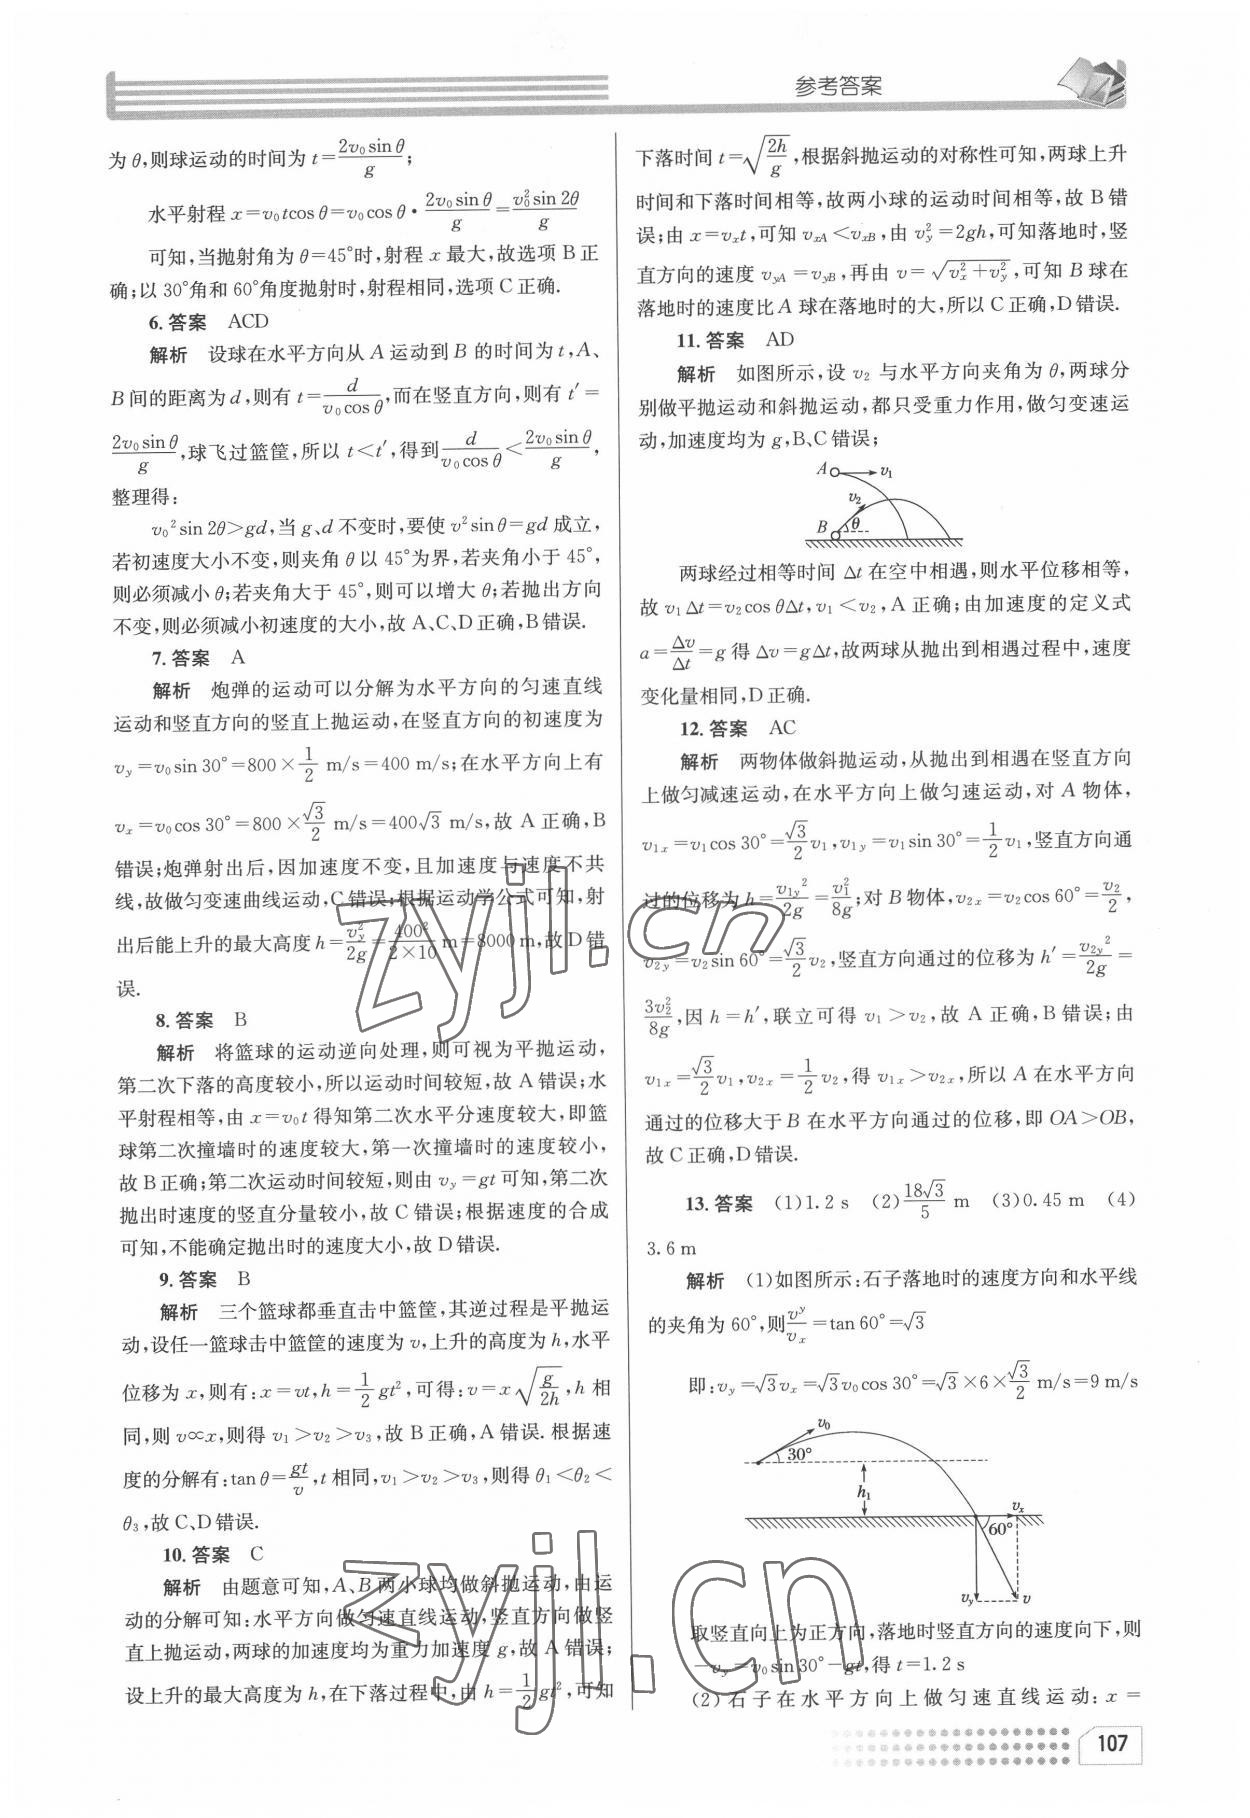 参考答案
为 θ,则球运动的时间为 t=2v₀sin θ/g;
水平射程 x=v₀tcos θ=v₀cos θ·2v₀sin θ/g=v₀²sin 2θ/g
可知,当抛射角为 θ=45°时,射程 x 最大,故选项 B 正
确;以 30°角和 60°角度抛射时,射程相同,选项 C 正确.
6. 答案 ACD
解析 设球在水平方向从 A 运动到 B 的时间为 t,A、
B 间的距离为 d,则有 t=d/(v₀cos θ),而在竖直方向,则有 t′=
2v₀sin θ/g,球飞过篮筐,所以 t<t′,得到 d/(v₀cos θ)<2v₀sin θ/g,
整理得:
v₀²sin 2θ>gd,当 g、d 不变时,要使 v²sin θ=gd 成立,
若初速度大小不变,则夹角 θ 以 45°为界,若夹角小于 45°,
则必须减小 θ;若夹角大于 45°,则可以增大 θ;若抛出方向
不变,则必须减小初速度的大小,故 A、C、D 正确,B 错误.
7. 答案 A
解析 炮弹的运动可以分解为水平方向的匀速直线
运动和竖直方向的竖直上抛运动,在竖直方向的初速度为
v_y=v₀sin 30°=800×1/2 m/s=400 m/s;在水平方向上有
v_x=v₀cos 30°=800×√3/2 m/s=400√3 m/s,故 A 正确,B
错误;炮弹射出后,因加速度不变,且加速度与速度不共
线,故做匀变速曲线运动,C 错误;根据运动学公式可知,射
出后能上升的最大高度 h=v_y²/2g=400²/(2×10) m=8000 m,故 D 错
误.
8. 答案 B
解析 将篮球的运动逆向处理,则可视为平抛运动,
第二次下落的高度较小,所以运动时间较短,故 A 错误;水
平射程相等,由 x=v₀t 得知第二次水平分速度较大,即篮
球第二次撞墙时的速度较大,第一次撞墙时的速度较小,
故 B 正确;第二次运动时间较短,则由 v_y=gt 可知,第二次
抛出时速度的竖直分量较小,故 C 错误;根据速度的合成
可知,不能确定抛出时的速度大小,故 D 错误.
9. 答案 B
解析 三个篮球都垂直击中篮筐,其逆过程是平抛运
动,设任一篮球击中篮筐的速度为 v,上升的高度为 h,水平
位移为 x,则有:x=vt,h=1/2 gt²,可得:v=x√(g/2h),h 相
同,则 v∝x,则得 v₁>v₂>v₃,故 B 正确,A 错误. 根据速
度的分解有:tan θ=gt/v,t 相同,v₁>v₂>v₃,则得 θ₁<θ₂<
θ₃,故 C、D 错误.
10. 答案 C
解析 由题意可知,A、B 两小球均做斜抛运动,由运
动的分解可知:水平方向做匀速直线运动,竖直方向做竖
直上抛运动,两球的加速度均为重力加速度 g,故 A 错误;
设上升的最大高度为 h,在下落过程中,由 h=1/2 gt²,可知
下落时间 t=√(2h/g),根据斜抛运动的对称性可知,两球上升
时间和下落时间相等,故两小球的运动时间相等,故 B 错
误;由 x=v_xt,可知 v_xA<v_xB,由 v_y²=2gh,可知落地时,竖
直方向的速度 v_yA=v_yB,再由 v=√(v_x²+v_y²),可知 B 球在
落地时的速度比 A 球在落地时的大,所以 C 正确,D 错误.
11. 答案 AD
解析 如图所示,设 v₂ 与水平方向夹角为 θ,两球分
别做平抛运动和斜抛运动,都只受重力作用,做匀变速运
动,加速度均为 g,B、C 错误;
A v₁
v₂
B θ
两球经过相等时间 Δt 在空中相遇,则水平位移相等,
故 v₁Δt=v₂cos θΔt,v₁<v₂,A 正确;由加速度的定义式
a=Δv/Δt=g 得 Δv=gΔt,故两球从抛出到相遇过程中,速度
变化量相同,D 正确.
12. 答案 AC
解析 两物体做斜抛运动,从抛出到相遇在竖直方向
上做匀减速运动,在水平方向上做匀速运动,对 A 物体,
v₁ₓ=v₁cos 30°=√3/2 v₁,v₁y=v₁sin 30°=1/2 v₁,竖直方向通
过的位移为 h=v₁y²/2g=v₁²/8g;对 B 物体,v₂ₓ=v₂cos 60°=v₂/2,
v₂y=v₂sin 60°=√3/2 v₂,竖直方向通过的位移为 h′=v₂y²/2g=
3v₂²/8g,因 h=h′,联立可得 v₁>v₂,故 A 正确,B 错误;由
v₁ₓ=√3/2 v₁,v₂ₓ=1/2 v₂,得 v₁ₓ>v₂ₓ,所以 A 在水平方向
通过的位移大于 B 在水平方向通过的位移,即 OA>OB,
故 C 正确,D 错误.
13. 答案 (1)1.2 s (2)18√3/5 m (3)0.45 m (4)
3.6 m
解析 (1)如图所示:石子落地时的速度方向和水平线
的夹角为 60°,则v^y/v_x=tan 60°=√3
即:v_y=√3v_x=√3v₀cos 30°=√3×6×√3/2 m/s=9 m/s
v₀
30°
h₁
v_x
60°
v_y v
取竖直向上为正方向,落地时竖直方向的速度向下,则
-v_y=v₀sin 30°-gt,得 t=1.2 s
(2)石子在水平方向上做匀速直线运动:x=
107
zyjl.cn
zyjl.cn